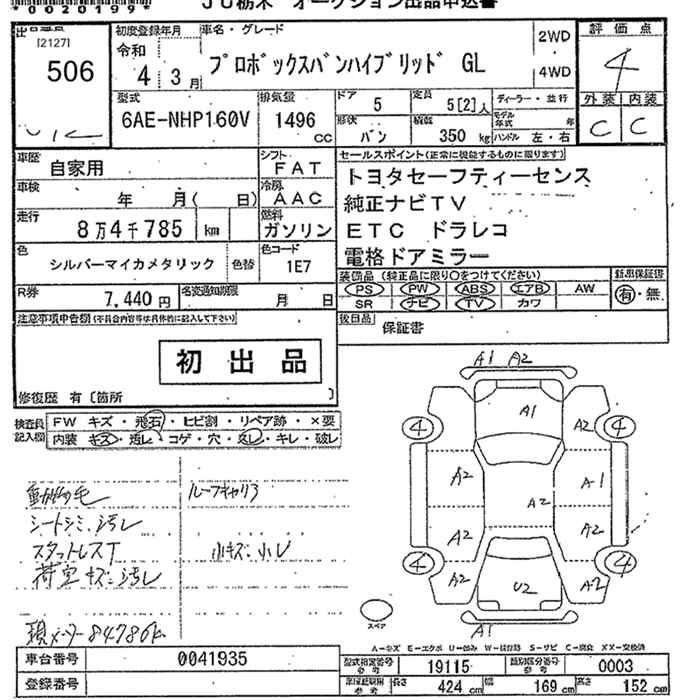 *0020199*
JU栃木 オークション出品申込書
[2127]
506
初度登録年月
令和
4 3月
車名・グレード
プロボックスバンハイブリッド GL
2WD
4WD
評価点
4
外装 内装
C C
型式
6AE-NHP160V
排気量
1496 cc
ドア
5
定員
5[2]人
ディーラー・並行
形状
バン
積載
350 kg
モデル年式 年
ハンドル 左・右
車歴
自家用
シフト
FAT
車検
年 月( 日)
冷房
AAC
走行
8万4千785 km
燃料
ガソリン
色
シルバーマイカメタリック
色替
色コード
1E7
R券
7,440円
名変通知期限
月 日
セールスポイント(正常に機能するものに限ります)
トヨタセーフティーセンス
純正ナビTV
ETC ドラレコ
電格ドアミラー
装備品(純正品に限り○をつけてください)
PS PW ABS エアB AW
SR ナビ TV カワ
新車保証書
有・無
後日品
保証書
注意事項申告欄(不具合内容等は具体的に記入して下さい)
初出品
修復歴 有〔箇所
検査員記入欄
FW キズ・飛石・ヒビ割・リペア跡・×要
内装 キズ・汚レ・コゲ・穴・欠レ・キレ・破レ
動物の毛
ルーフキャリア
シートシミ、汚レ
スタットレスT
小キズ・小レ
荷室キズ・汚レ
現メーター 84786k
A1 A2
A1
4 A2 4
A2 A1
A2
A2 A2
4 4
A2 U2 A2
A1
スペア
A－キズ E－エクボ U－凹み W－補修跡 S－サビ C－腐食 XX－交換済
車台番号
0041935
登録番号
型式指定番号 参考
19115
類別区分番号 参考
0003
車庫証明用 参考
長さ 424 cm
幅 169 cm
高さ 152 cm